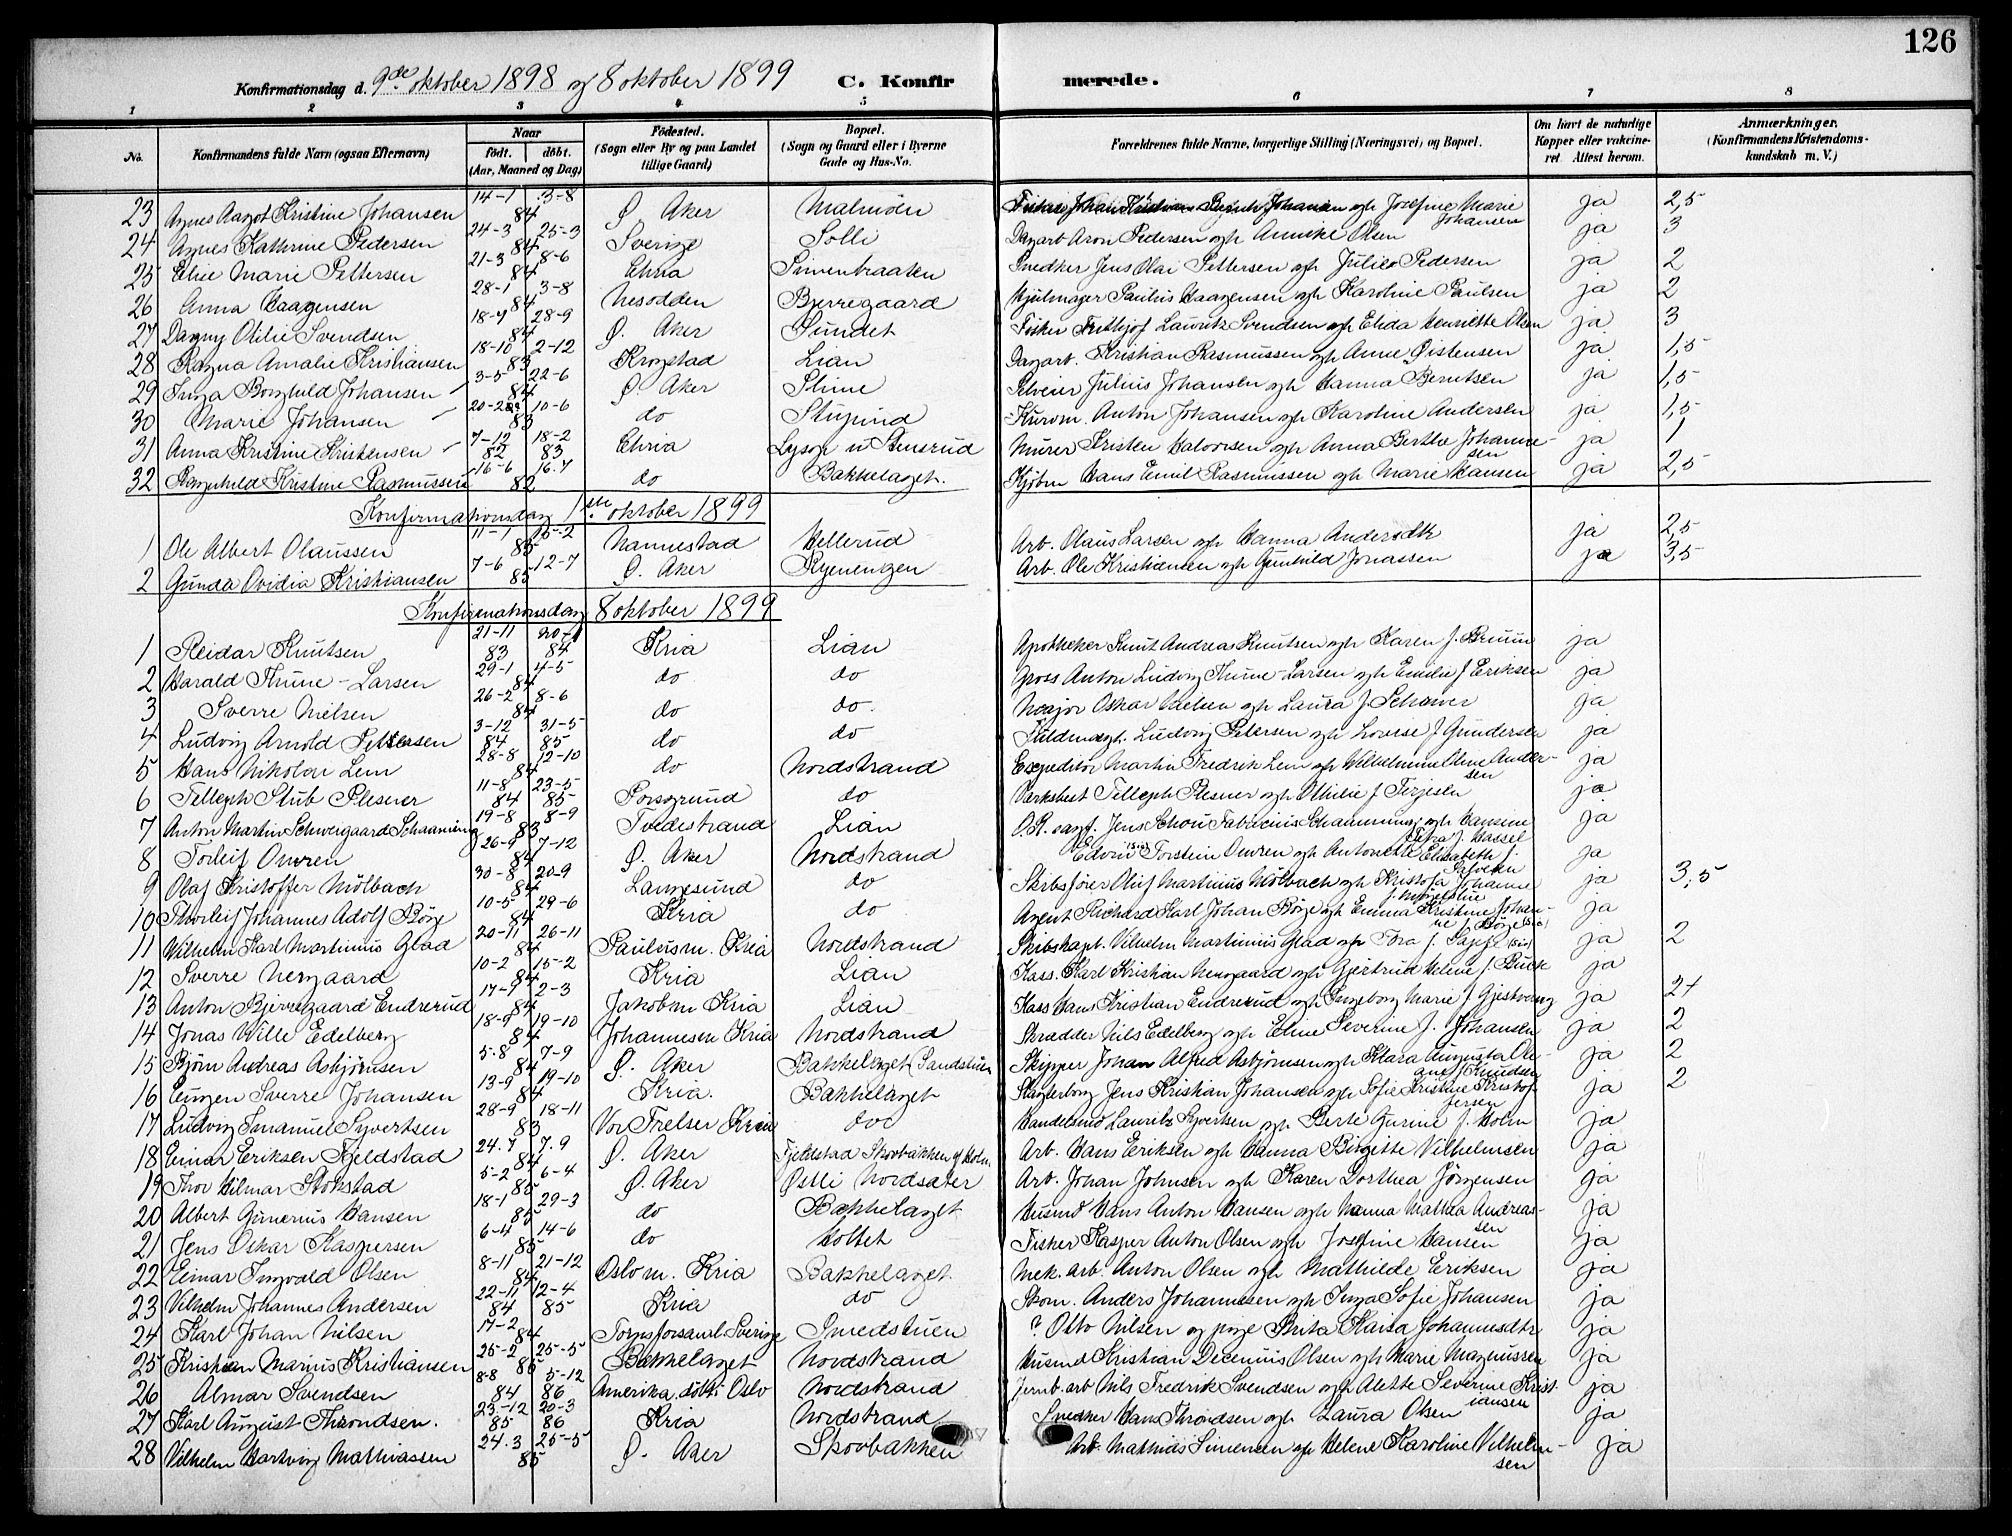 126
Konfirmationsdag d. 9de oktober 1898 og 8 oktober 1899 C. Konfirmerede.
1 2 3 4 5 6 7 8
No. Konfirmandens fulde Navn (ogsaa Efternavn) Naar født. døbt. (Aar, Maaned og Dag) Fødested. (Sogn eller By og paa Landet tillige Gaard) Bopæl. (Sogn og Gaard eller i Byerne Gade og Hus-No. Forældrenes fulde Navne, borgerlige Stilling (Næringsvei) og Bopæl. Om havt de naturlige Kopper eller vakcineret Attest herom. Anmærkninger. (Konfirmandens Kristendomskundskab m. V.)
23 Agnes Aagot Kristine Johansen 14-1 3-8 84 Ø. Aker Malmöen Fisker Johan Johansen og h Josefine Marie Johansen ja 2,5
24 Agnes Kathrine Pedersen 24-3 25-3 84 Sverige Solli Dagarb Aron Pedersen og h Annike Olsen ja 3
25 Elise Marie Pettersen 21-3 8-6 84 Chria Simenbraaten Snedker Jens Olai Pettersen og h Julie Pedersen ja 2
26 Anna Haagensen 28-1 3-8 84 Nesodden Bjerregaard Hjulmager Paulus Haagensen og h Karoline Paulsen ja 2
27 Dagny Otilie Svendsen 18-7 28-9 84 Ø. Aker Sundet Fisker Frithjof Lauritz Svendsen og h Elida Henriette Olsen ja 3
28 Ragna Amalie Kristiansen 18-10 2-12 83 Krogstad Lian Dagarb. Kristian Rasmussen og h Anne Øistensen ja 1,5
29 Inga Borghild Johansen 3-5 22-6 84 Ø. Aker Stime Selveier Julius Johansen og h Hanna Berntsen ja 1,5
30 Marie Johansen 20-2 10-6 83 do Stupind Kurvm. Anton Johansen og h Karoline Andersen ja 1,5
31 Anna Kristine Kristensen 7-12 82 18-2 83 Chria Lysop u Stensrud Murer Kristen Halvorsen og h Anna Berthe Johannesen ja 1
32 Ragnhild Kristine Rasmussen 16-6 16.7 82 do Bækkelaget. Kjøbm Hans Emil Rasmussen og h Marie Hansen ja 2,5
Konfirmationsdag 1ste oktober 1899
1 Ole Albert Olaussen 11-1 15-2 85 Nannestad Hellerud Arb. Olaus Larsen og h Hanna Andersdtr ja 2,5
2 Gunda Ovidia Kristiansen 7-6 12-7 85 Ø. Aker Ryenengen Arb. Ole Kristiansen og h Gunhild Jonassen ja 3,5
Konfirmationsdag 8 oktober 1899
1 Reidar Knutsen 21-11 83 84 Kria Lian Apotheker Knut Andreas Knutsen og h Karen f. Bruun ja
2 Harald Thune-Larsen 29-1 4-5 84 do do Gross Anton Ludvig Thune-Larsen og h Emilie f Eriksen ja
3 Sverre Nielsen 26-2 8-6 84 do do. Major Oskar Nielsen og h Laura f. ja
4 Ludvig Arnold Pettersen 3-12 84 31-5 85 do do Fuldmægt. Ludvig Petersen og h Lovise f Gundersen ja
5 Hans Nikolai Lem 28-8 12-10 84 do Nordstrand Expeditör Martin Fredrik Lem og h Vilhelmine Andersen ja
6 Telleph Stub Plesner 11-8 84 23-5 85 Porsgrund do Værksbest Telleph Plesner og h Othilie f Terjesen ja
7 Anton Martin Schweigaard Schanning 19-8 8-9 83 Tvedestrand Lian O.R. sagf. Jens Schou Fabricius Schanning og h Hansine Petra f. Hassel ja
8 Torleif Omren 26-9 7-12 84 Ø. Aker Nordstrand Edvin (sic) Torstein Omren og h Antonette Elisabeth f. ja
9 Olaf Kristoffer Mölbach 30-8 20-9 84 Langesund do Skibsfører Oluf Martinius Mölbach og h Kristofa Johanne ja 3,5
10 Thorleif Johannes Adolf Böge 10-5 29-6 84 Kria do Agent Richard Karl Johan Böge og h Emma Kristine Johanne f. Böge (sic) ja
11 Vilhelm Karl Martinius Glad 20-11 26-11 84 Paulusm. Kria Nordstrand Skibskapt. Vilhelm Martinius Glad og h Tora f. (sic) ja 2
12 Sverre Nergaard 10-2 15-2 84 Kria Lian Kass. Karl Kristian Nergaard og h Gjertrud Helene f. Buck ja
13 Anton Bjerregaard Endrerud 17-9 2-3 84 Jakobsm Kria Lian Kass Hans Kristian Endrerud og h Ingeborg Marie f. Gjestvang ja 2+
14 Jonas Wille Edelberg 18-9 19-10 84 Johannesm Kria Nordstrand Skrædder Nils Edelberg og h Eline Severine f. Johansen ja 2
15 Björn Andreas Asbjörnsen 5-8 7-9 84 Ø. Aker Bækkelaget (Sandstuen Skipper Johan Alfred Asbjörnsen og h Klara Augusta Oleane f Knudsen ja 2
16 Eugen Sverre Johansen 13-9 19-10 84 Kria. Bækkelaget Slagterborg Jens Kristian Johansen og h Sofie Kristine Kristoffersen ja 2
17 Ludvig Emanuel Syvertsen 28-9 18-11 83 Vor Frelser Kria do Handelsmd Lauritz Syvertsen og h Berte Gurine f. Holm ja
18 Einar Eriksen Fjeldstad 24.7 7.9 84 Ø. Aker Fjeldstad Skovbakken Arb. Hans Eriksen og h Hanna Birgitte Vilhelmsen ja
19 Thor Hilmar Stokstad 5-2 6-4 85 Ø. Aker Østli Nordsæter Arb. Johan Johnsen og h Karen Dorthea Jörgensen ja
20 Albert Gunerius Hansen 18-1 29-3 85 do Bækkelaget Husmd Hans Anton Hansen og h Hanna Mathea Andreassen ja
21 Jens Oskar Kaspersen 6-4 14-6 85 do Holtet Fisker Kasper Anton Olsen og h Josefine Hansen ja
22 Einar Ingvald Olsen 8-11 21-12 84 Oslo m. Kria Bækkelaget Mek. arb. Anton Olsen og h Mathilde Eriksen ja
23 Vilhelm Johannes Andersen 22-11 84 12-4 85 Kria do Skom. Anders Johannesen og h Inga Sofie Johansen ja
24 Karl Johan Nilsen 17-2 84 Sverige Smedstuen ? Otto Nilsen og pige Brita Kaisa Johannesdtr ja
25 Kristian Marius Kristiansen 25-2 25-5 85 Bækkelaget Nordstrand Husmd Kristian Decenius Olsen og h Marie Magnussen ja
26 Almar Svendsen 8-8 84 5-12 86 Amerika, döbt i Oslo Nordstrand Jernb. arb Nils Fredrik Svendsen og h Alette Severine Kristiansen ja
27 Karl August Throndsen. 23-12 85 20-3 86 Kria Nordstrand Snedker Hans Throndsen og h Laura Olsen ja
28 Vilhelm Hartvig Mathiassen 24.3 25-5 85 Ø. Aker Skovbakken Arb. Mathias Simensen og h Helene Karoline Vilhelmsen ja